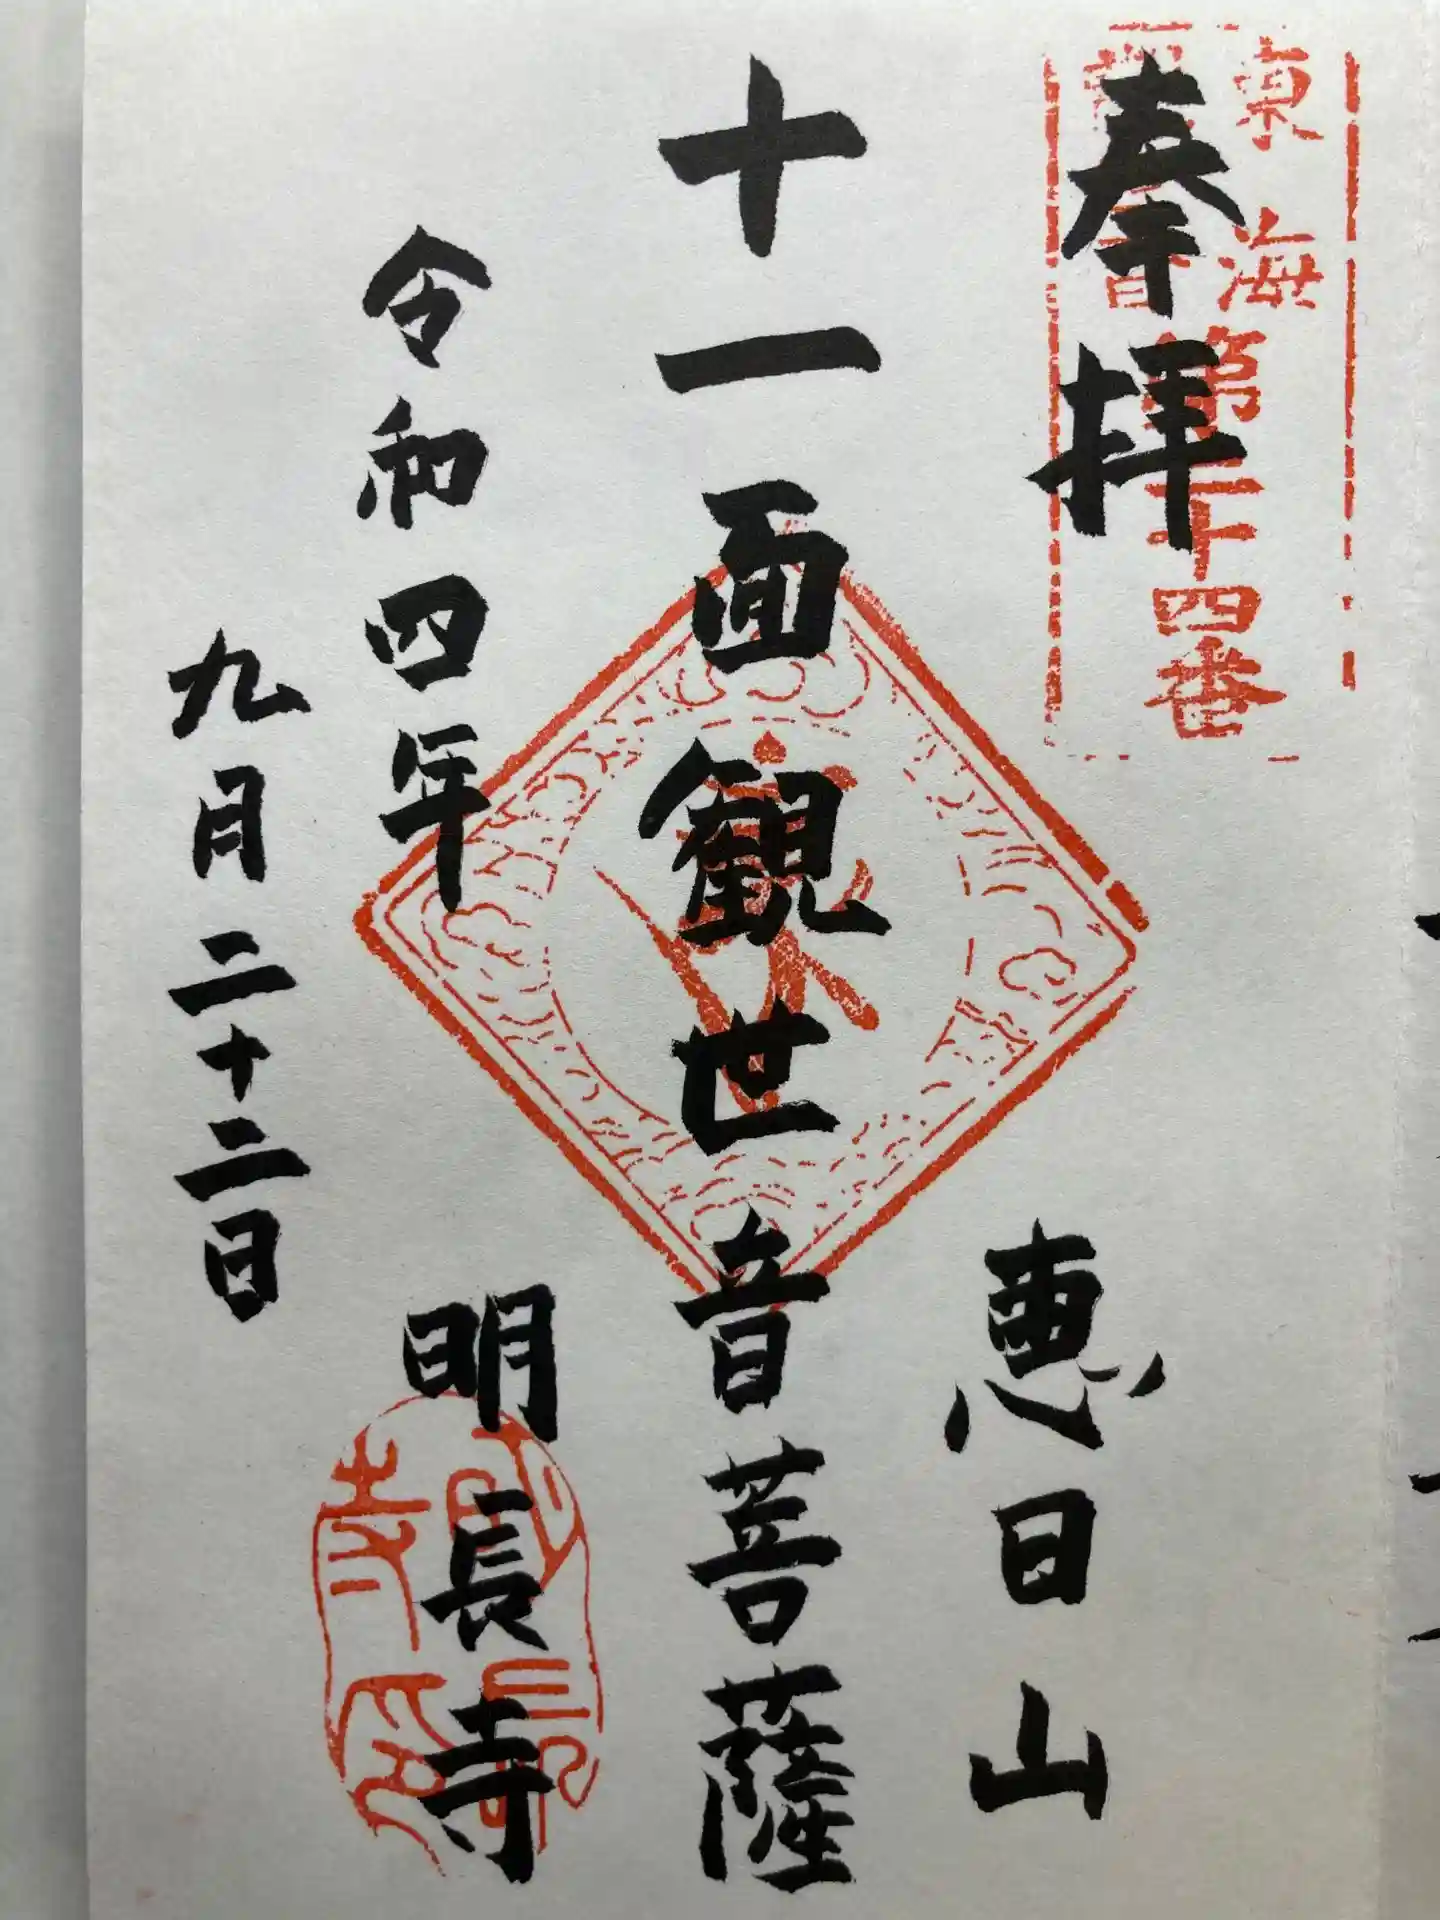 東海
観音
第二十四番
奉拝
恵日山
十一面観世音菩薩
令和四年
九月二十二日
明長寺
明長寺印